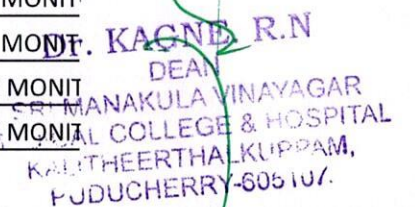 MONIT
MONIT
MONIT
MONIT
Dr. KAGNE, R.N
DEAN
SRI MANAKULA VINAYAGAR
COLLEGE & HOSPITAL
KALITHEERTHALKUPPAM,
PUDUCHERRY-605107.